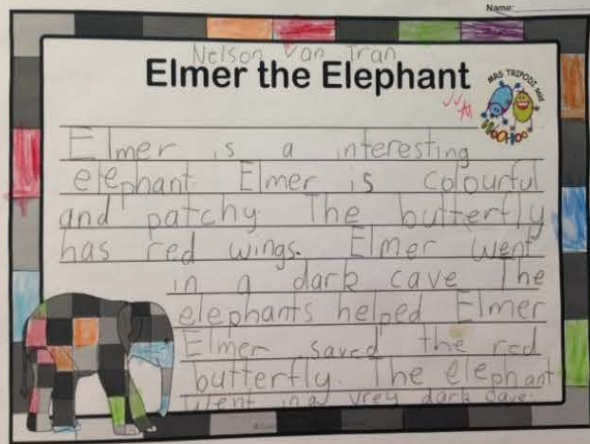 Name:
Nelson Van Tran
Elmer the Elephant
MRS TRIPODI said
WOOHOO
Elmer is a interesting
elephant. Elmer is colourful
and patchy The butterfly
has red wings. Elmer went
in a dark cave The
elephants helped Elmer
Elmer saved the red
butterfly. The elephant
went in a vrey dark cave.